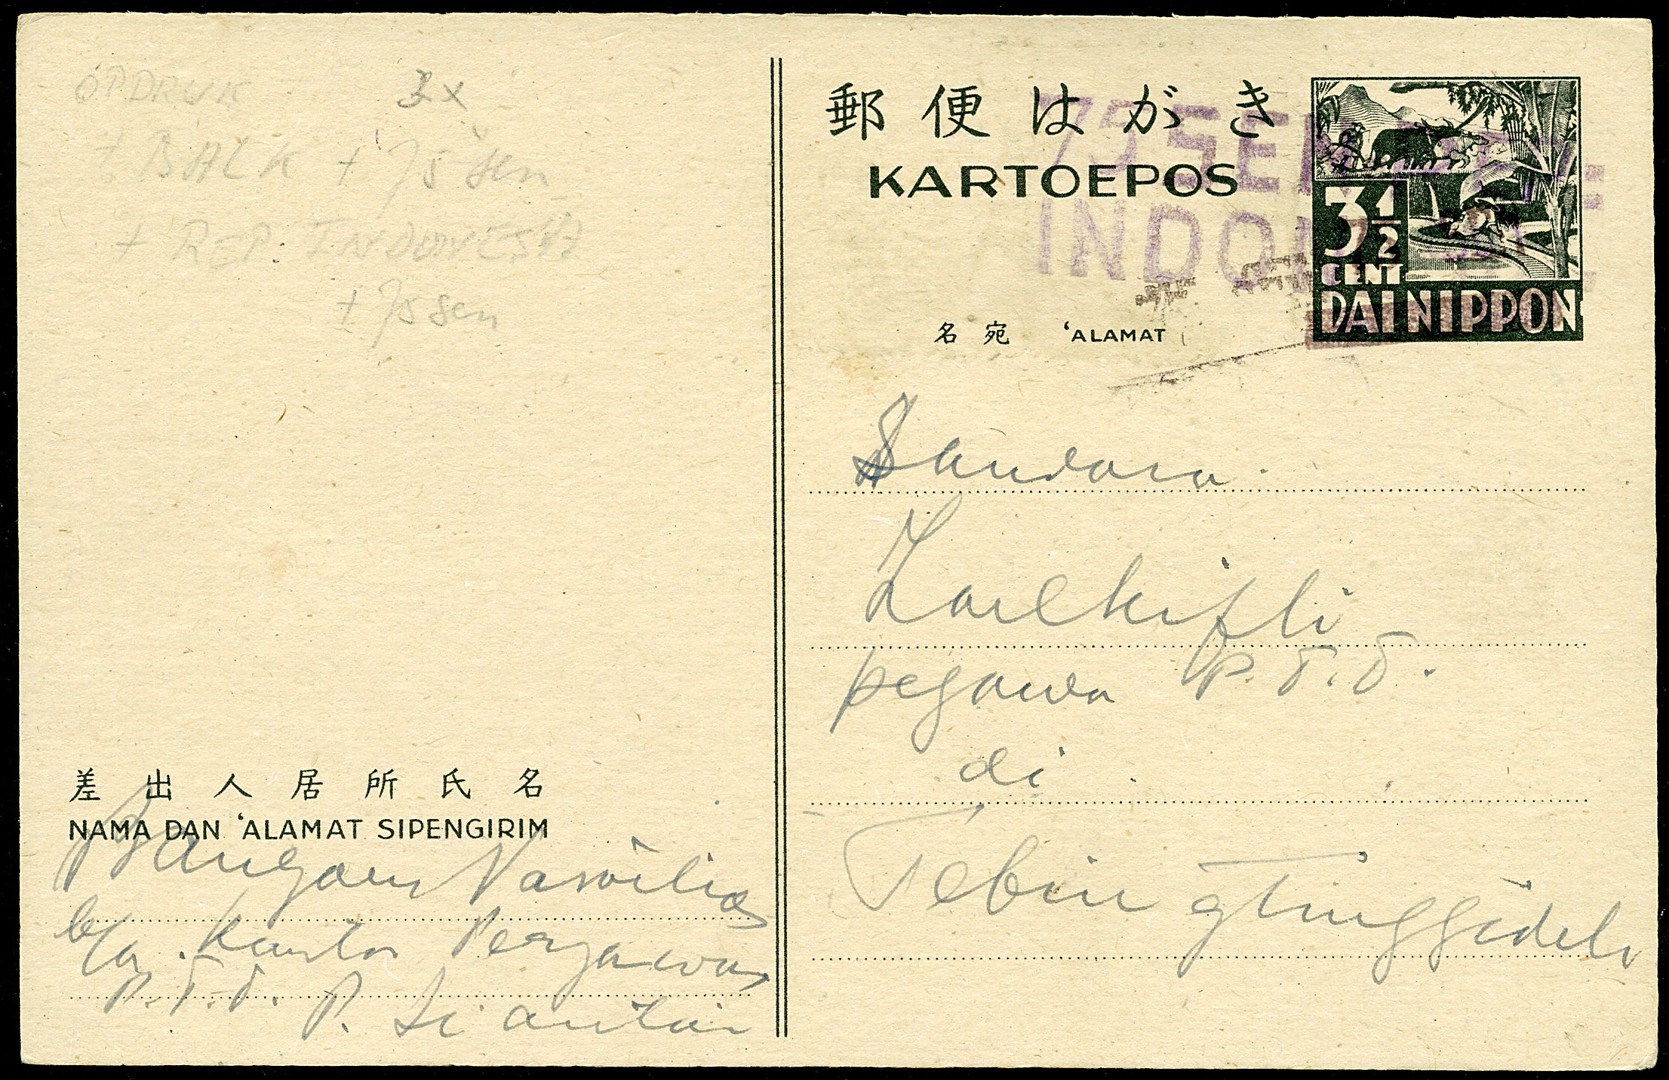 OPDRUK 2x
+ BALK + 75 sen
+ REP. INDONESIA
+ 75 sen
郵便はがき
KARTOEPOS
75 SEN
INDO
3 1/2
CENT
DAI NIPPON
名宛 'ALAMAT
Saudara
Zoelkifli
pegawai P.T.T.
di
Tebingtinggideli
差出人居所氏名
NAMA DAN 'ALAMAT SIPENGIRIM
b/a. Kantor
P.T.T. P. Siantar